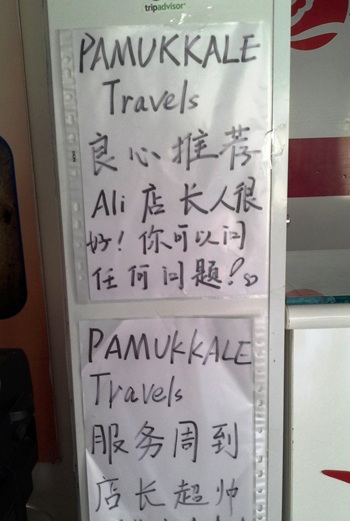 tripadvisor
PAMUKKALE
Travels
良心推荐
Ali 店长人很
好！你可以问
任何问题！
PAMUKKALE
Travels
服务周到
店长超帅